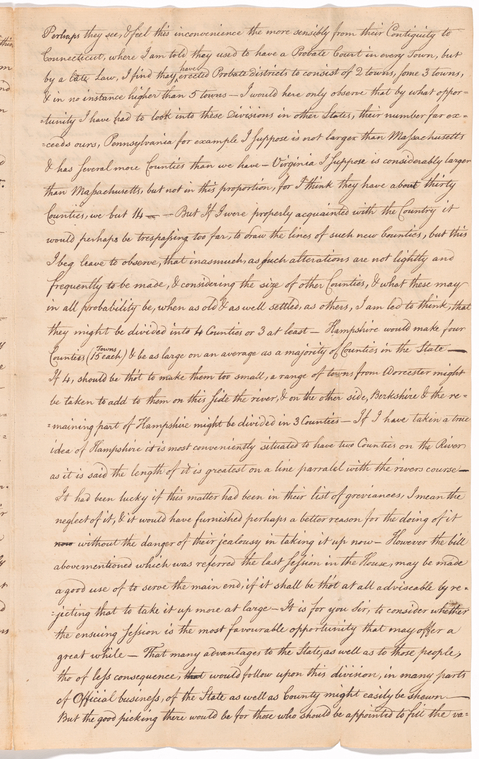 Perhaps they see, & feel this inconvenience the more sensibly from their Contiguity to
Connecticut, where I am told they used to have a Probate Court in every Town, but
by a late Law, I find they have erected Probate districts to consist of 2 towns, some 3 towns,
& in no instance higher than 5 towns — I would here only observe that by what oppor-
-tunity I have had to look into these Divisions in other States, their number far ex-
-ceeds ours, Pennsylvania for example I suppose is not larger than Massachusetts
& has several more Counties than we have — Virginia I suppose is considerably larger
than Massachusetts, but not in this proportion, for I think they have about thirty
Counties, we but 14 — But If I were properly acquainted with the Country it
would perhaps be trespassing too far, to draw the lines of such new Counties, but this
I beg leave to observe, that inasmuch, as such alterations are not lightly and
frequently to be made, & considering the size of other Counties, & what these may
in all probability be, when as old & as well settled, as others, I am led to think, that
they might be divided into 4 Counties or 3 at least — Hampshire would make four
Counties (15 Towns each) & be as large on an average as a majority of Counties in the State —
If 4, should be thot to make them too small, a range of towns from Worcester might
be taken to add to them on this side the river, & on the other side, Berkshire & the re-
-maining part of Hampshire might be divided in 3 Counties — If I have taken a true
idea of Hampshire it is most conveniently situated to have two Counties on the River
as it is said the length of it is greatest on a line parralel with the rivers course —
It had been lucky if this matter had been in their list of grievances, I mean the
neglect of it, & it would have furnished perhaps a better reason for the doing of it
now without the danger of their jealousy in taking it up now — However the bill
abovementioned which was referred the last session in the House, may be made
a good use of to serve the main end, if it shall be thot at all adviseable by re-
-jicting that to take it up more at large — It is for you Sir, to consider whether
the ensuing Session is the most favourable opportunity that may offer a
great while — That many advantages to the State, as well as to those people,
tho of less consequence, that would follow upon this division, in many parts
of Official business, of the State as well as County might easily be shewn —
But the good picking there would be for those who should be appointed to fill the va-